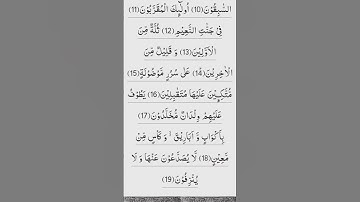 السّٰبِقُوْنَ(10) اُولٰٓئِكَ الْمُقَرَّبُوْنَ(11)
فِیْ جَنّٰتِ النَّعِیْمِ(12) ثُلَّةٌ مِّنَ
الْاَوَّلِیْنَ(13) وَ قَلِیْلٌ مِّنَ
الْاٰخِرِیْنَ(14) عَلٰى سُرُرٍ مَّوْضُوْنَةٍ(15)
مُّتَّكِـٕیْنَ عَلَیْهَا مُتَقٰبِلِیْنَ(16) یَطُوْفُ
عَلَیْهِمْ وِلْدَانٌ مُّخَلَّدُوْنَ(17)
بِاَكْوَابٍ وَّ اَبَارِیْقَ ۙ وَ كَاْسٍ مِّنْ
مَّعِیْنٍ(18) لَّا یُصَدَّعُوْنَ عَنْهَا وَ لَا
یُنْزِفُوْنَ(19)